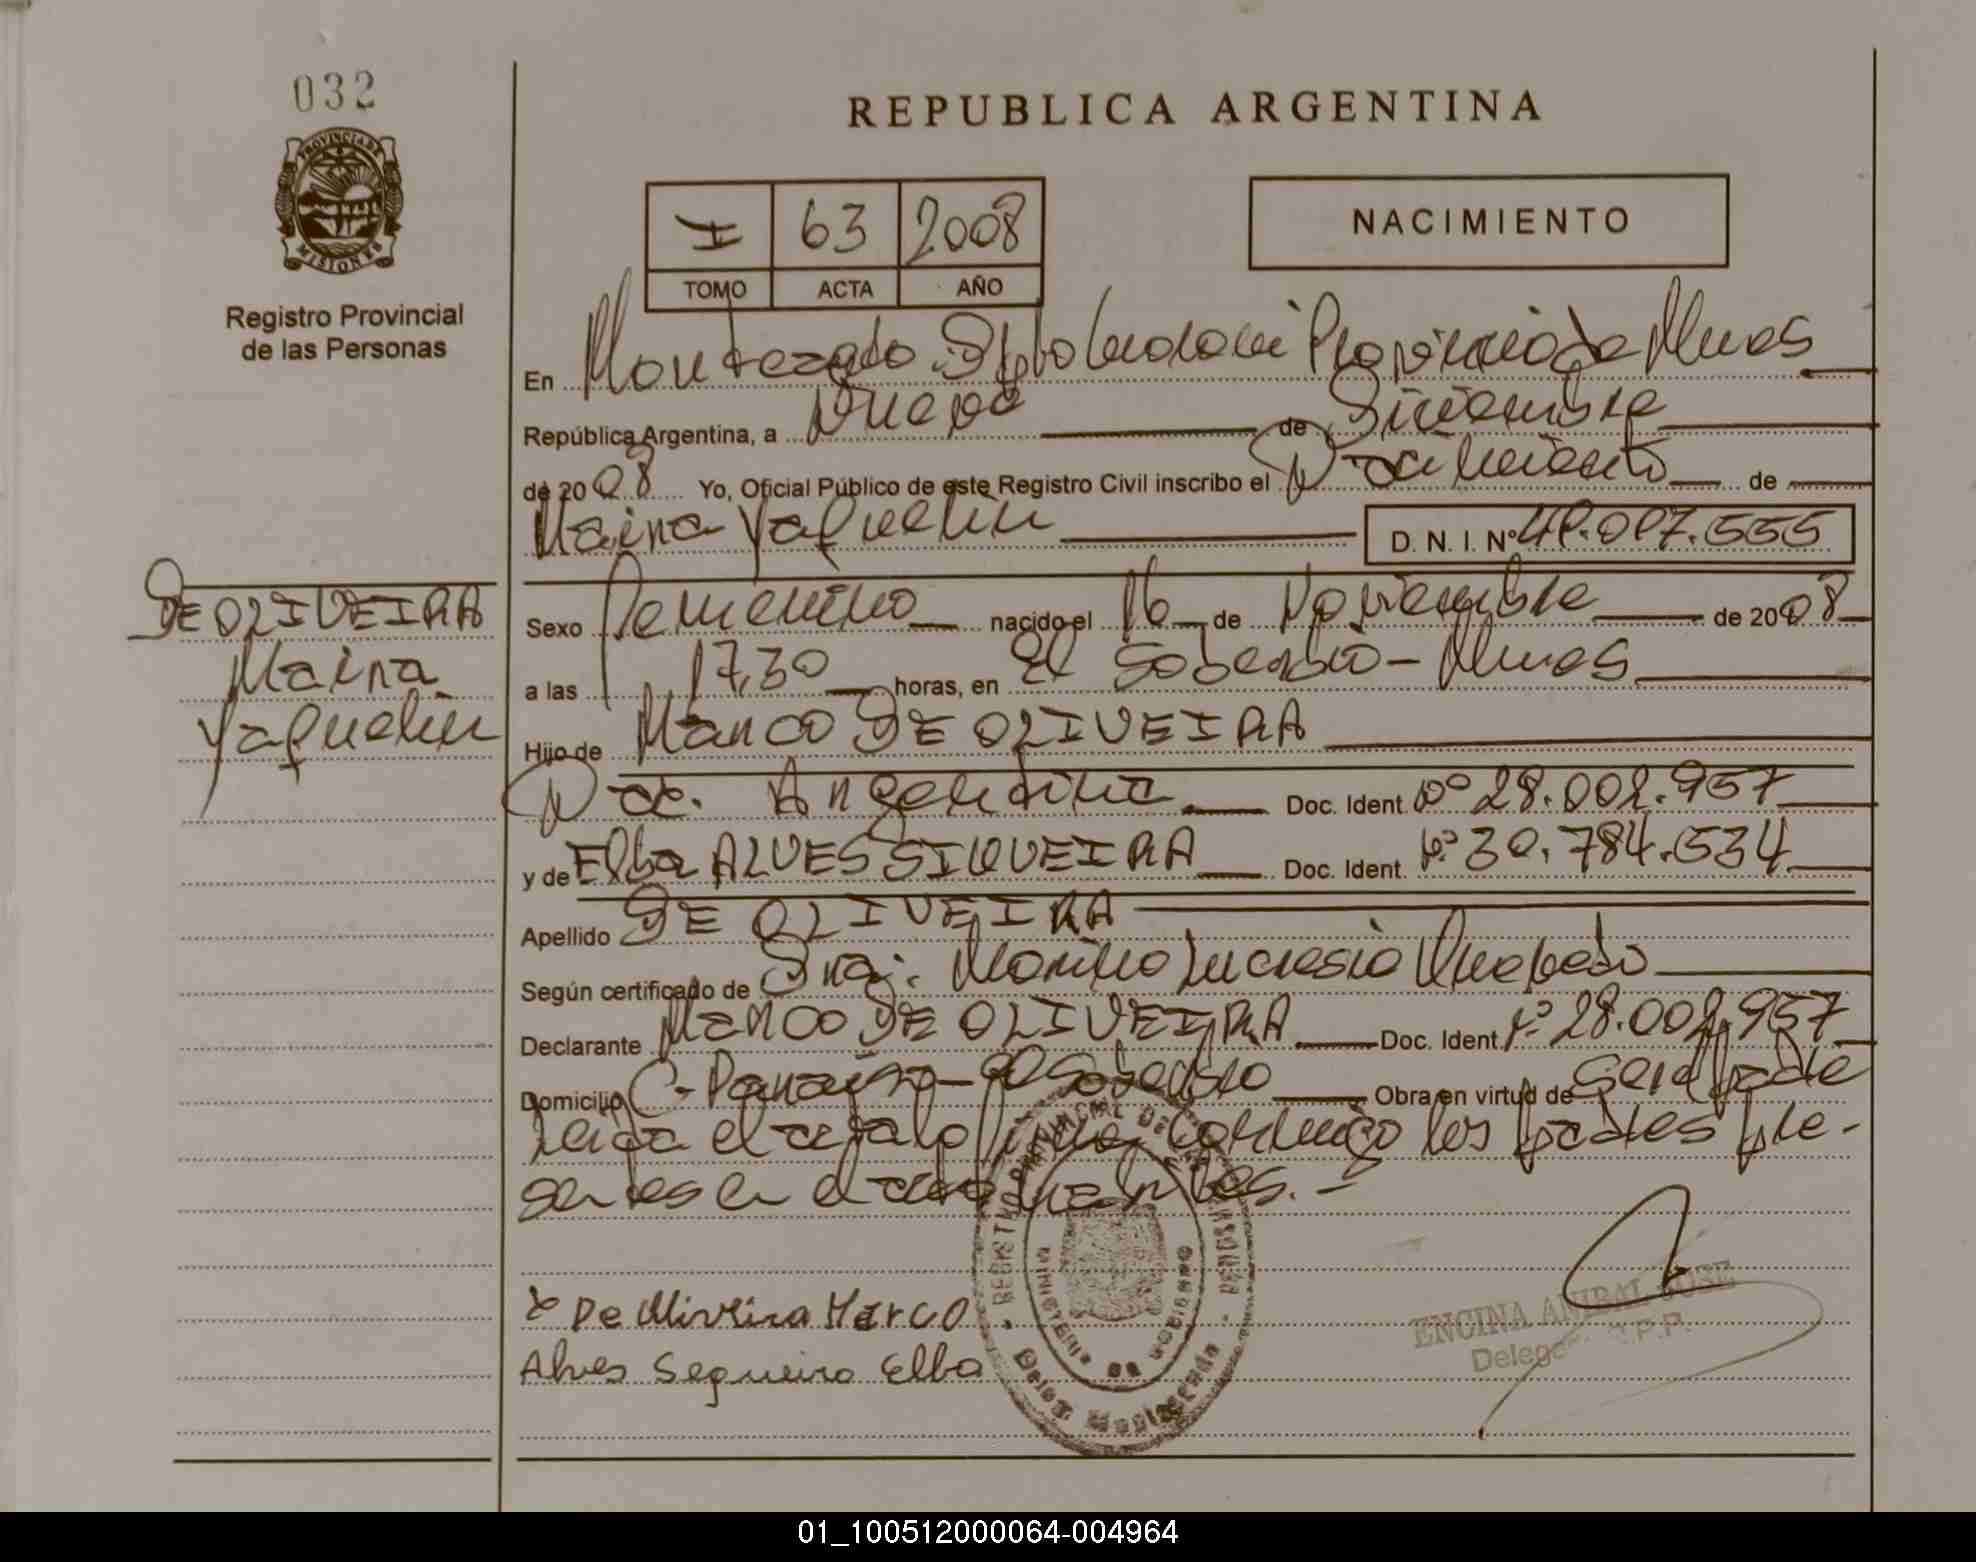 032
PROVINCIA DE
MISIONES
Registro Provincial
de las Personas
REPUBLICA ARGENTINA
I 63 2008
TOMO ACTA AÑO
NACIMIENTO
En Monteagudo Provincia de Mnes
República Argentina, a nueve de Diciembre
de 2008 Yo, Oficial Público de este Registro Civil inscribo el Nacimiento de
Maina Yaquelin D. N. I. Nº 49.017.555
DE OLIVEIRA
Maina
Yaquelin
Sexo Femenino nacido el 16 de Noviembre de 2008
a las 17,30 horas, en El Soberbio - Mnes
Hijo de Marco DE OLIVEIRA
Nac. Argentina Doc. Ident. Nº 28.002.957
y de Elba ALVES SIQUEIRA Doc. Ident. Nº 30.784.534
Apellido DE OLIVEIRA
Según certificado de Lucresia
Declarante Marco DE OLIVEIRA Doc. Ident. Nº 28.002.957
Domicilio C- Paraíso - El Soberbio Obra en virtud de
leida el acta la conmigo los padres pre-
sentes en el acto
De Oliveira Marco
Alves Sequeira Elba
REGISTRO PROVINCIAL DE LAS PERSONAS
MINISTERIO DE GOBIERNO
Deleg. Monteagudo
ENCINA ANIBAL JOSE
Delega R.P.P.
01_100512000064-004964